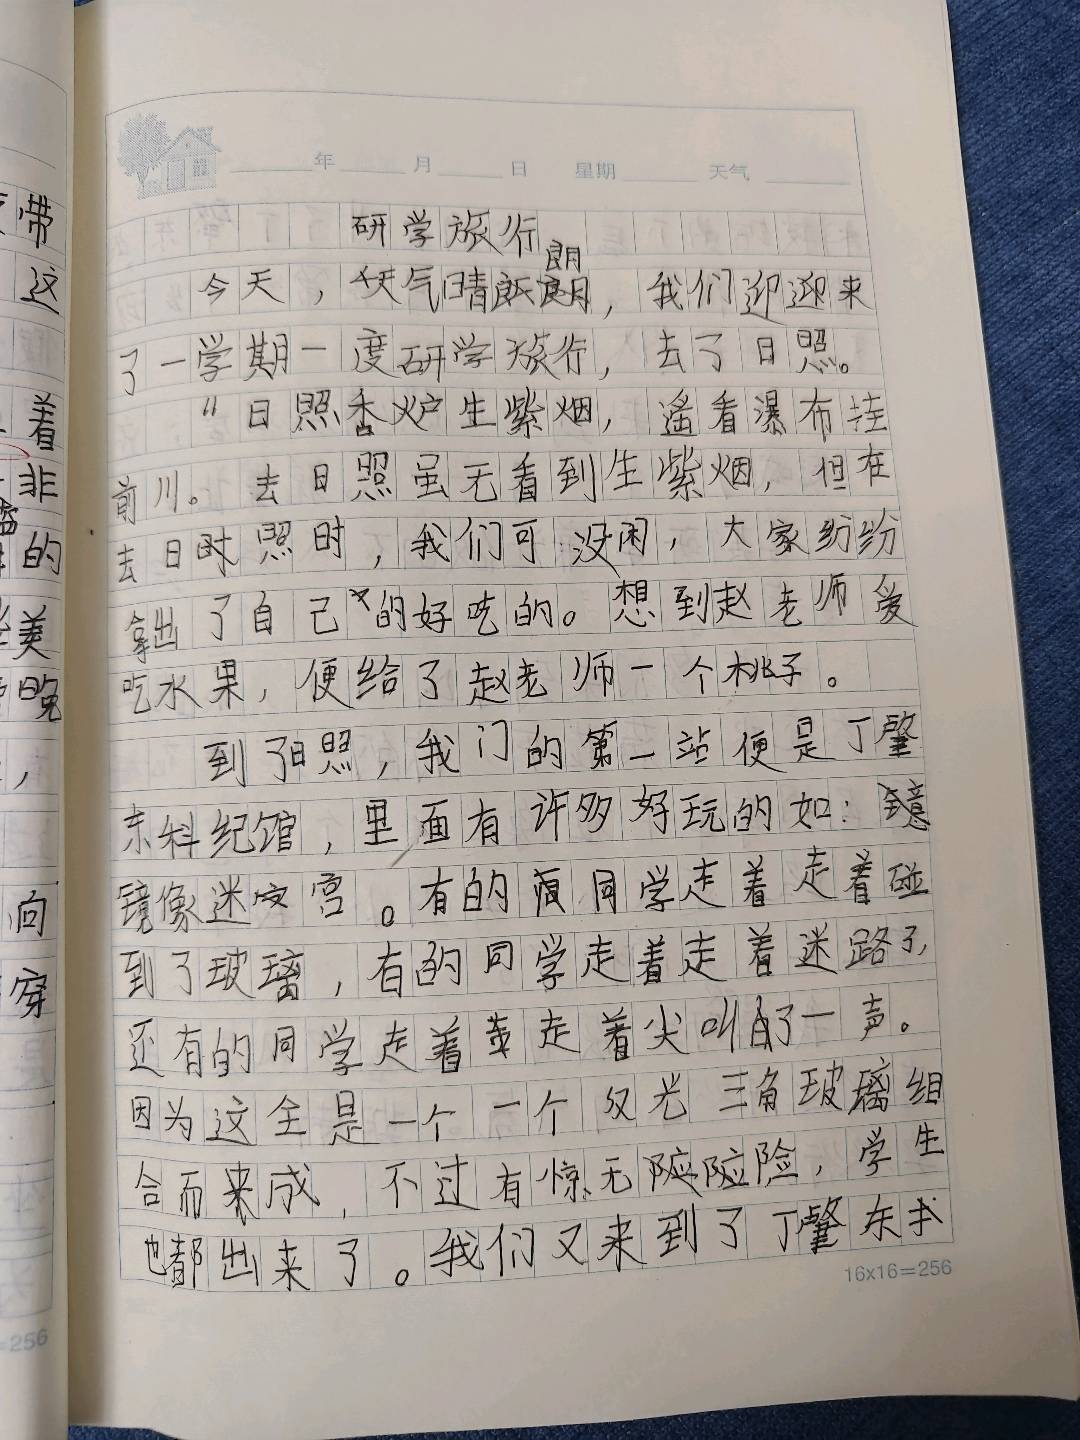 年 月 日 星期 天气
研学旅行
今天，天气晴朗，我们迎迎来
了一学期一度研学旅行，去了日照。
“日照香炉生紫烟，遥看瀑布挂
前川。去日照虽无看到生紫烟，但在
去日时照时，我们可没闲，大家纷纷
拿出了自己的好吃的。想到赵老师爱
吃水果，便给了赵老师一个桃子。
到了日照，我门的第一站便是丁肇
东科纪馆，里面有许多好玩的如：镜
镜像迷宫。有的同学走着走着碰
到了玻璃，有的同学走着走着迷路了，
还有的同学走着走着尖叫了一声。
因为这全是一个一个双光三角玻璃组
合而来成，不过有惊无险，学生
也都出来了。我们又来到了丁肇东书
16x16=256
带
这
着
非
的
美
晚
，
向
穿
=256